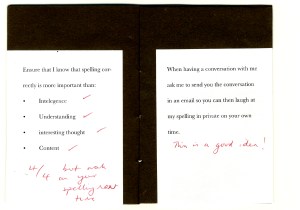 Ensure that I know that spelling cor-
rectly is more important than:
• Intelegence
• Understanding
• interesting thought
• Content
4/4 but work
on your
spelling next
time
When having a conversation with me
ask me to send you the conversation
in an email so you can then laugh at
my spelling in private on your own
time.
This is a good idea!